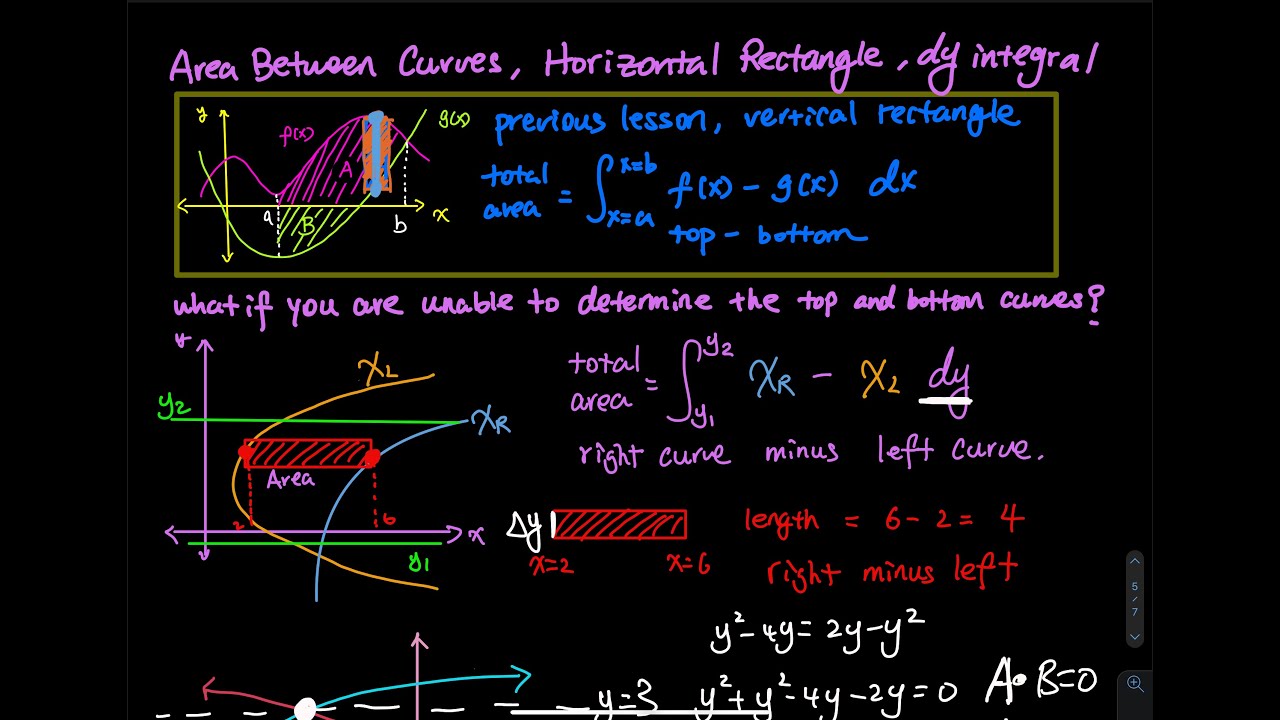 Area Between Curves, Horizontal Rectangle, dy integral
y
f(x)
g(x)
A
B
a
b
x
previous lesson, vertical rectangle
total area = ∫_{x=a}^{x=b} f(x) - g(x) dx
top - bottom
what if you are unable to determine the top and bottom curves?
y
x_L
y_2
x_R
Area
2
6
x
y_1
total area = ∫_{y_1}^{y_2} x_R - x_L dy
right curve minus left curve.
Δy
x=2
x=6
length = 6 - 2 = 4
right minus left
y² - 4y = 2y - y²
y=3
y² + y² - 4y - 2y = 0
A • B = 0
5
/
7